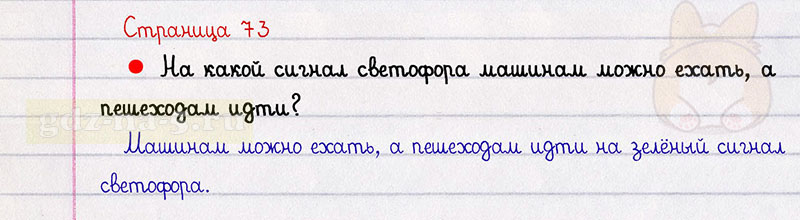 Страница 73
На какой сигнал светофора машинам можно ехать, а
пешеходам идти?
gdz-na-5.ru
Машинам можно ехать, а пешеходам идти на зелёный сигнал
светофора.